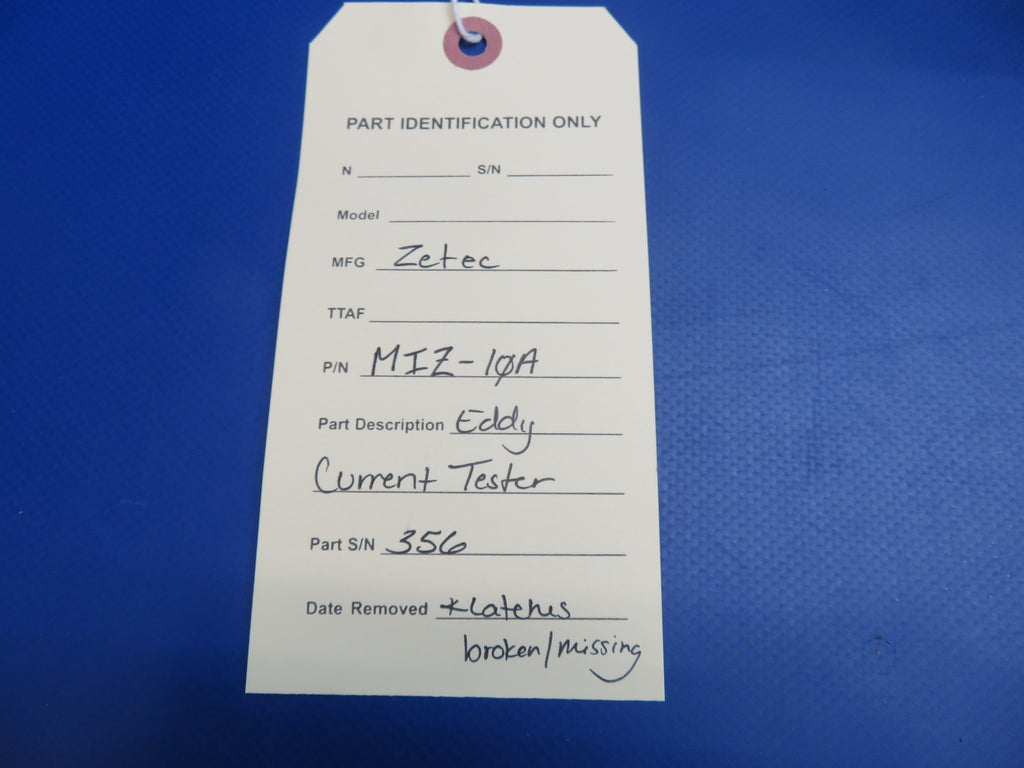 PART IDENTIFICATION ONLY
N S/N
Model
MFG Zetec
TTAF
P/N MIZ-10A
Part Description Eddy
Current Tester
Part S/N 356
Date Removed *Latches
broken/missing